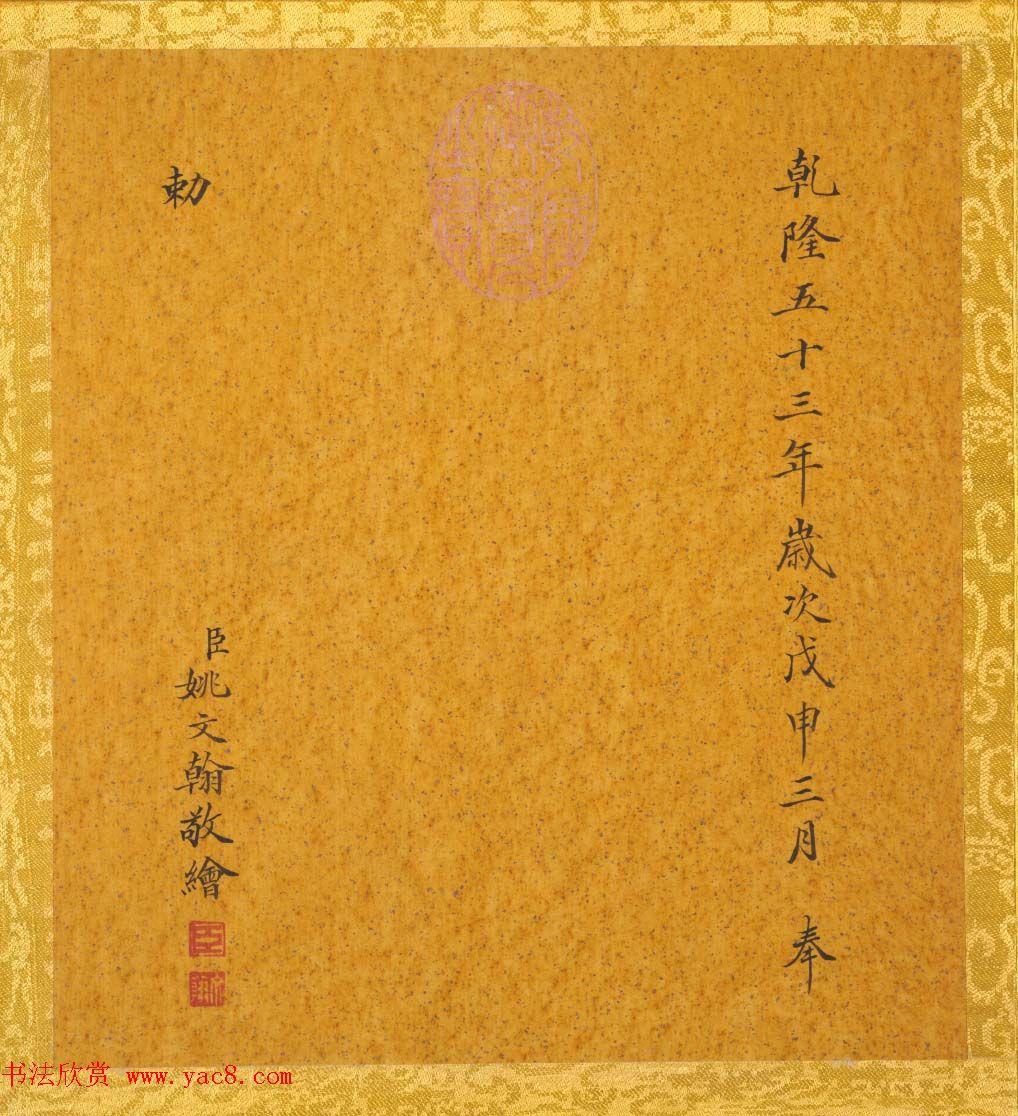 乾隆五十三年歲次戊申三月 奉
勅
臣姚文翰敬繪
书法欣赏 www.yac8.com